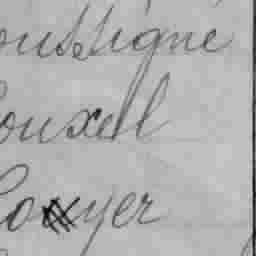 oussigné
ouxel
oyer